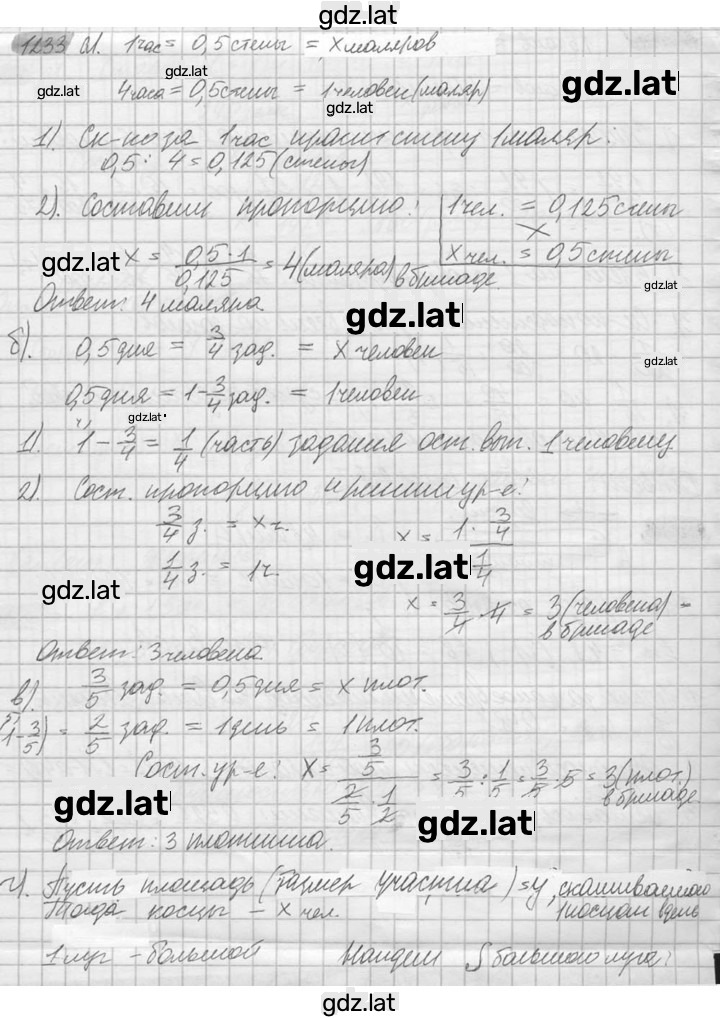 gdz.lat
1233 а). 1 час = 0,5 стены = x маляров
gdz.lat
gdz.lat
gdz.lat
4 часа = 0,5 стены = 1 человек (маляр)
gdz.lat
1). Ск-ко за 1 час красит стену 1 маляр:
0,5 : 4 = 0,125 (стены)
2). Составим пропорцию:
1 чел. = 0,125 стены
x чел. = 0,5 стены
gdz.lat
x = 0,5 · 1 / 0,125 = 4 (маляра) в бригаде.
gdz.lat
Ответ: 4 маляра.
gdz.lat
б). 0,5 дня = 3/4 зад. = x человек
gdz.lat
0,5 дня = 1 - 3/4 зад. = 1 человек
gdz.lat
1). 1 - 3/4 = 1/4 (часть) задания ост. вып. 1 человеку
2). Сост. пропорцию и решим ур-е:
3/4 з. = x ч.
1/4 з. = 1 ч.
x = 1 · 3/4 / 1/4
gdz.lat
gdz.lat
x = 3/4 · 4 = 3 (человека) - в бригаде
Ответ: 3 человека
в). 3/5 зад. = 0,5 дня = x плот.
(1 - 3/5) = 2/5 зад. = 1 день = 1 плот.
Сост. ур-е: x = 3/5 / 2/5 · 1/2 = 3/5 : 1/5 = 3/5 · 5 = 3 (плот.) в бригаде
gdz.lat
gdz.lat
Ответ: 3 плотника.
г). Пусть площадь (размер участка) = y, скашиваемого 1 косцом в день
Тогда косцы - x чел.
1 луг - большой Найдем S большого луга:
gdz.lat